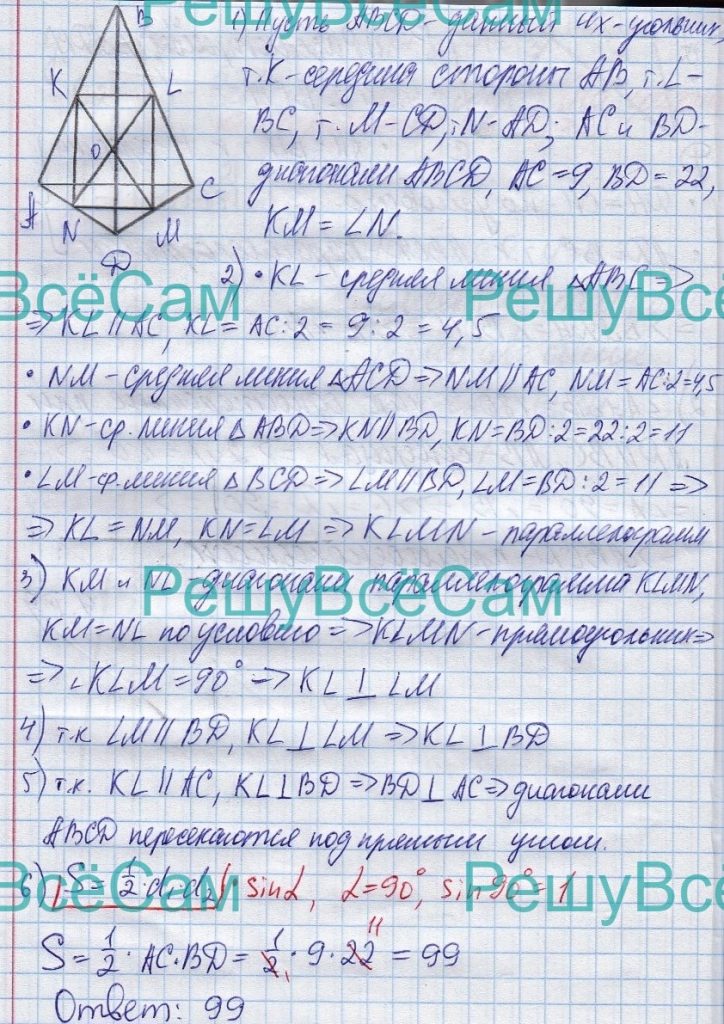 РешуВсёСам
В
1) Пусть ABCD - данный 4х-угольник,
K
L
т.K-середина стороны AB, т.L-
BC, т.M-CD, т.N-AD; AC и BD-
O
диагонали ABCD, AC=9, BD=22,
A
C
KM=LN.
N
M
D
2) • KL - средняя линия △ABC =>
ВсёСам
РешуВсё
=> KL || AC, KL = AC:2 = 9:2 = 4,5
• NM-средняя линия △ACD => NM || AC, NM = AC:2=4,5
• KN-ср. линия △ ABD => KN || BD, KN=BD:2=22:2=11
• LM-ср. линия △ BCD => LM || BD, LM=BD:2=11 =>
=> KL = NM, KN=LM => KLMN - параллелограмм
3) KM и NL-диагонали параллелограмма KLMN,
РешуВсёСам
KM=NL по условию => KLMN-прямоугольник=>
=> ∠KLM=90° => KL ⊥ LM
4) т.к. LM || BD, KL ⊥ LM => KL ⊥ BD
5) т.к. KL || AC, KL ⊥ BD => BD ⊥ AC => диагонали
ABCD пересекаются под прямым углом.
ВсёСам
РешуВсё
6) S = 1/2 · d₁ d₂ · sinα, α=90°, sin90°=1
S = 1/2 · AC·BD = 1/2 · 9 · 22 = 99
11
1
Ответ: 99